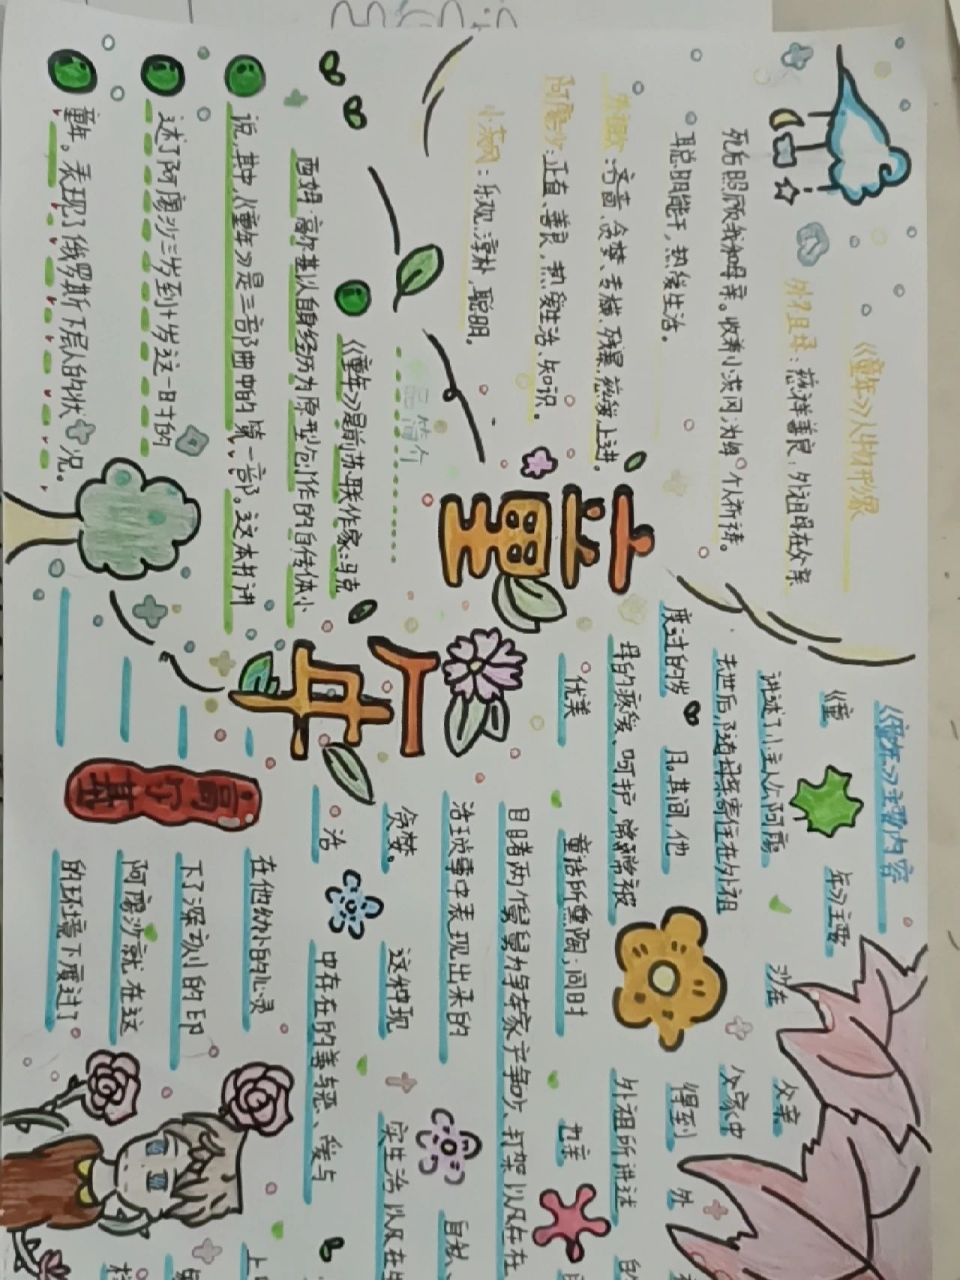 《童年》人物形象
外祖母：慈祥善良，外祖母在父亲
死后照顾我和母亲。收养小茨冈，为每一个人祈祷。
聪明能干，热爱生活。
：吝啬、贪婪、专横、残暴，热爱上进。
阿廖沙：正直、善良，热爱生活、知识。
小茨冈：乐观、淳朴、聪明。
品简介
《童年》是前苏联作家：马克
西姆·高尔基以自身经历为原型创作的自传体小
说，其中，《童年》是三部曲中的第一部。这本书讲
述了阿廖沙三岁到十岁这一时的
童年。表现了俄罗斯下层人的状况。
童年
高尔基
《童年》主要内容
《童 年》主要
讲述了小主人公阿廖 沙在 父亲
去世后，随母亲寄住在外祖 父家中
度过的岁 月。其间，他 得到 外
母的疼爱、呵护，常常被 外祖所讲述 的
优美 童话所熏陶；同时 也亲
目睹两个舅舅为夺家产争吵、打架以及在
活琐事中表现出来的 自私、
贪婪。 这种现 实生活以及在生
活 中存在的善与恶、爱与
在他幼小的心灵 上
下了深刻的印
阿廖沙就在这
的环境下度过了